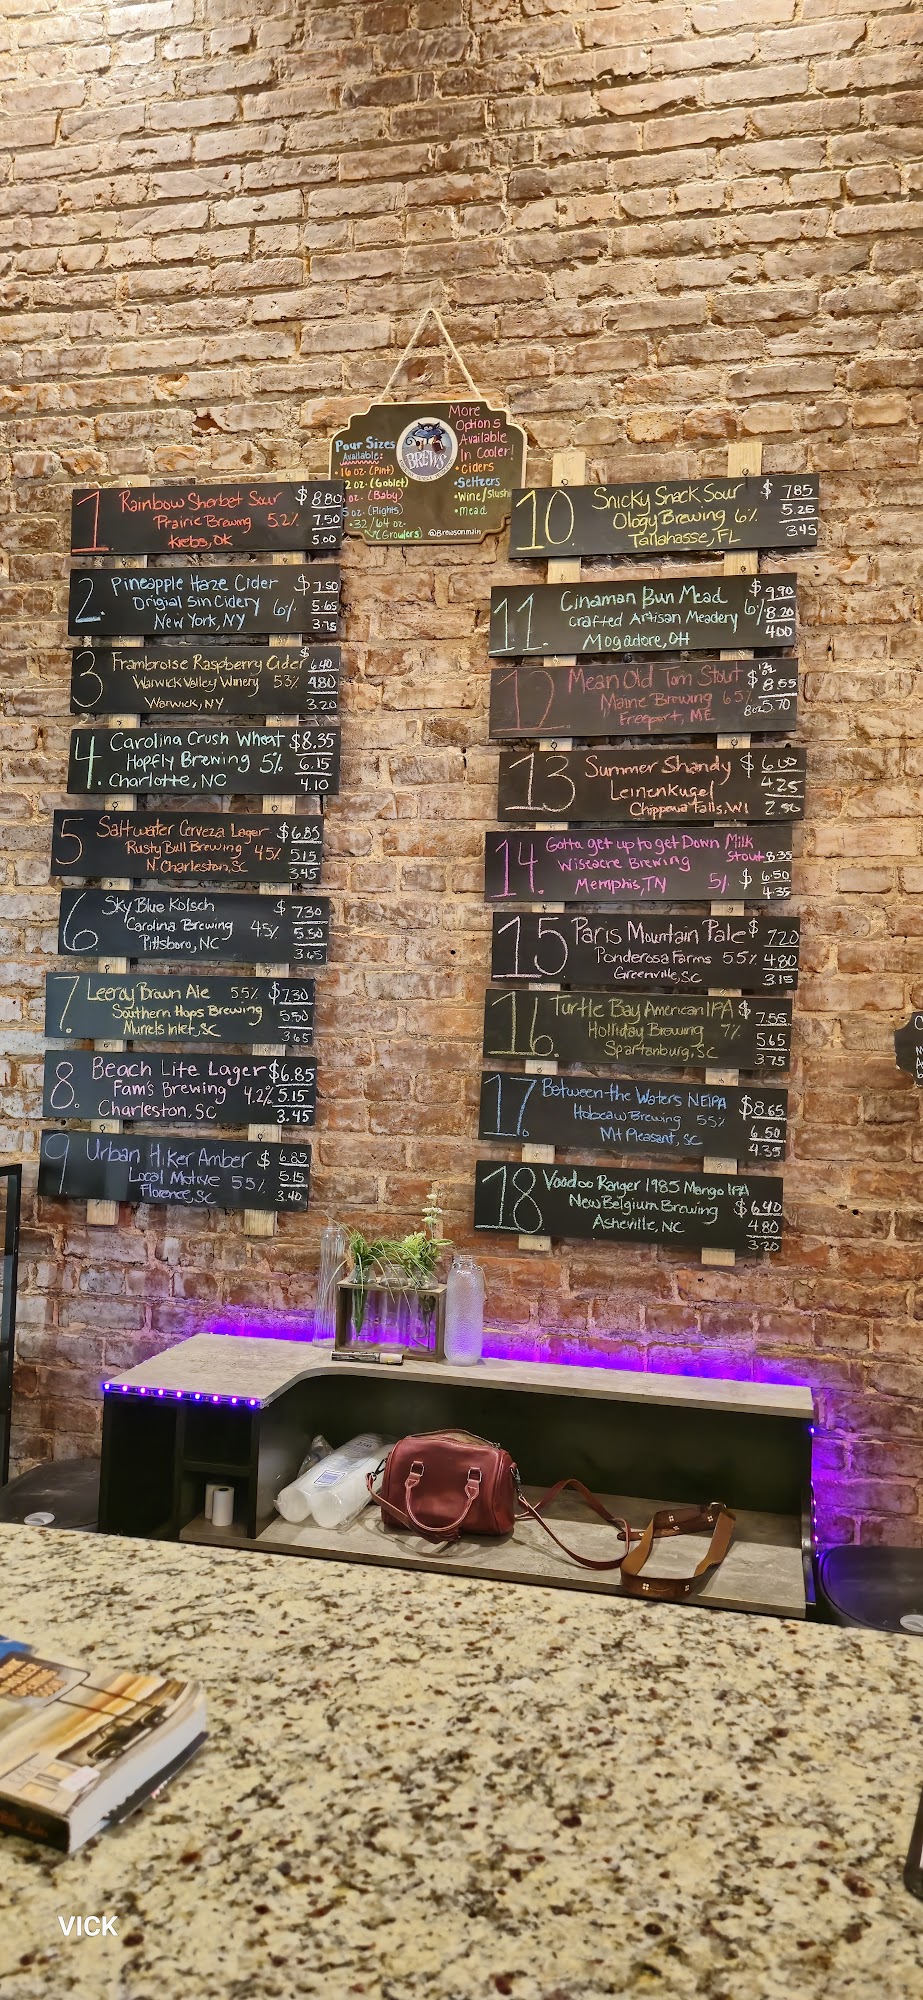 More
Options
Available
In Cooler!
• Ciders
• Seltzers
• Wine/Slush
• Mead
Pour Sizes
Available:
• 16 oz. (Pint)
2 oz. (Goblet)
oz. (Baby)
oz. (Flights)
• 32/64 oz.
(Growlers)
@Brewsonmain
BREWS
1 Rainbow Sherbet Sour $8.80
Prairie Brewing 5.2% 7.50
Krebs, OK 5.00
2. Pineapple Haze Cider $7.50
Origial Sin Cidery 6% 5.65
New York, NY 3.75
3 Frambroise Raspberry Cider $6.40
Warwick Valley Winery 5.3% 4.80
Warwick, NY 3.20
4. Carolina Crush Wheat $8.35
Hopfly Brewing 5% 6.15
Charlotte, NC 4.10
5 Saltwater Cerveza Lager $6.85
Rusty Bull Brewing 4.5% 5.15
N. Charleston, SC 3.45
6. Sky Blue Kolsch $7.30
Carolina Brewing 4.5% 5.50
Pittsboro, NC 3.65
7. Leeroy Brown Ale 5.5% $7.30
Southern Hops Brewing 5.50
Murrels Inlet, SC 3.65
8. Beach Lite Lager $6.85
Fam's Brewing 4.2% 5.15
Charleston, SC 3.45
9 Urban Hiker Amber $6.85
Local Motive 5.5% 5.15
Florence, SC 3.40
10. Snicky Snack Sour $7.85
Ology Brewing 6% 5.25
Tallahasse, FL 3.45
11. Cinaman Bun Mead $9.90
Crafted Artisan Meadery 6% 8.20
Mogadore, OH 4.00
12. Mean Old Tom Stout $8.55
Maine Brewing 6.5%
Freeport, ME 8oz 5.70
13. Summer Shandy $6.00
Leinenkugel 4.25
Chippewa Falls, WI 2.50
14. Gotta get up to get Down Milk
Wiseacre Brewing Stout 8.35
Memphis, TN 5% $6.50
4.35
15. Paris Mountain Pale $7.20
Ponderosa Farms 5.5% 4.80
Greenville, SC 3.15
16. Turtle Bay American IPA $7.55
Holliday Brewing 7% 5.65
Spartanburg, SC 3.75
17. Between the Waters NEIPA $8.65
Hobcaw Brewing 5.5% 6.50
Mt Pleasant, SC 4.35
18. Voodoo Ranger 1985 Mango IPA
New Belgium Brewing $6.40
Asheville, NC 4.80
3.20
VICK